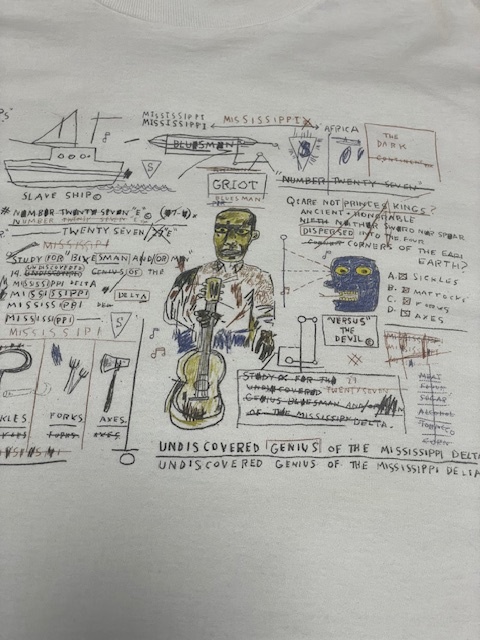 MISSISSIPPI
MISSISSIPPI
MISSISSIPPI
AFRICA
THE
DARK
BLUESMAN
S
S
SLAVE SHIP©
GRIOT
BLUESMAN
"NUMBER TWENTY SEVEN"
# NUMBER TWENTY SEVEN "E"©
NUMBER TWENTY SEVEN "E"
TWENTY SEVEN "E"
MISSISSIPPI
STUDY FOR BLUESMAN AND/OR
UNDISCOVERED GENIUS OF THE
MISSISSIPPI DELTA
MISSISSIPPI
MISSISSIPPI
MISSISSIPPI
MISSISSIPPI
DELTA
S
Q: ARE NOT PRINCES KINGS?
ANCIENT + HONORABLE
NEITH NEITHER SWORD NOR SPEAR
DISPERSED INTO THE FOUR
CORNERS OF THE EAR
EARTH?
A. SICKLES
B. MATTOCKS
C. FORKS
D. AXES
"VERSUS"
THE
DEVIL®
KLES
FORKS
AXES
FORKS
AXES
STUDY OF FOR THE
UNDISCOVERED TWENTYSEVEN
GENIUS BLUESMAN AND/OR
OF THE MISSISSIPPI DELTA.
MEAT
FLOUR
SUGAR
ALCOHOL
TOBACCO
CORN
UNDISCOVERED GENIUS OF THE MISSISSIPPI DELTA
UNDISCOVERED GENIUS OF THE MISSISSIPPI DELTA